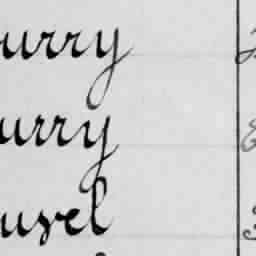 urry
urry
usel